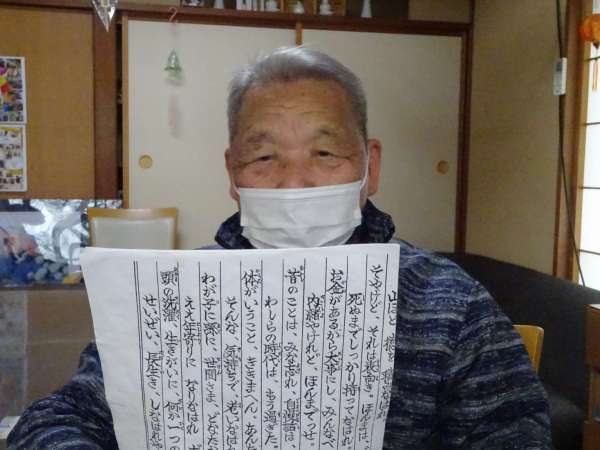 山ほど 徳を
そやけど、それは表向き。ほんまは、
死ぬまでしっかり持ってなはれ。
お金があるから大事にし、みんなベ
内緒やけれど、ほんまでっせ。
昔のことは みな忘れ 自慢話は、
わしらの時代は、もう過ぎた。
体がいうこと、ききまへん。あんた
そんな 気持ちで 老いなはれ
わが子に孫に 世間さま、どなたか
ええ年寄りに なりなはれ ボ
頭の洗濯、生きがいに 何か一つの
せいぜい、長生き、しなはれや